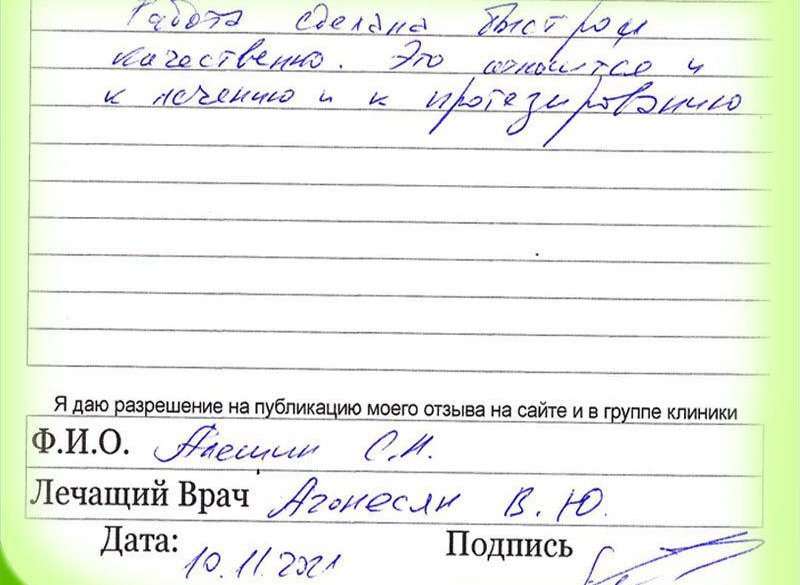 Работа сделана быстро и
качественно. Это относится и
к лечению и к протезированию
Я даю разрешение на публикацию моего отзыва на сайте и в группе клиники
Ф.И.О. Алешин С.Н.
Лечащий Врач Агонесян В.Ю.
Дата: 10.11.2021 Подпись